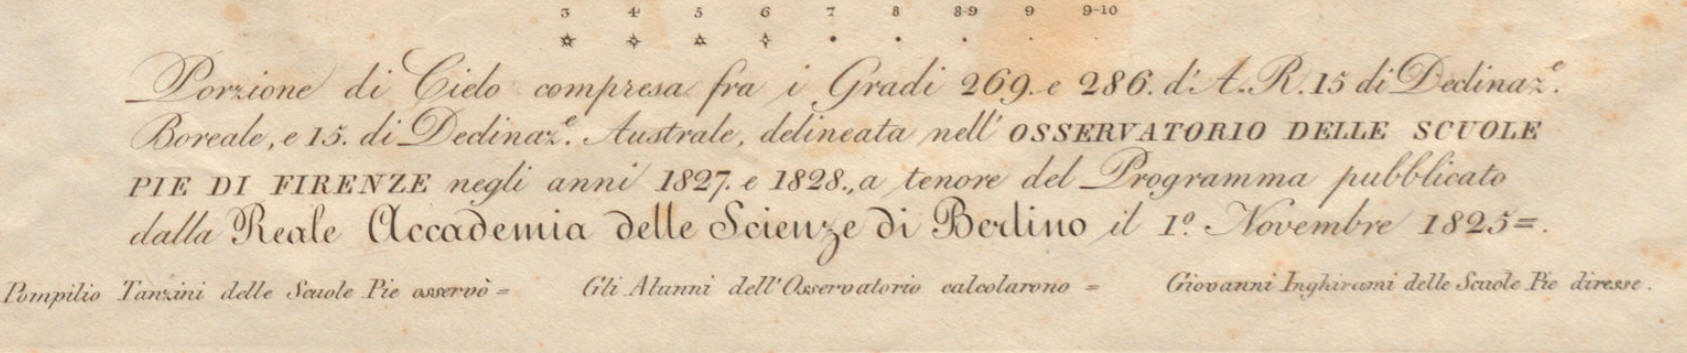 3 4 5 6 7 8 8·9 9 9-10
Porzione di Cielo compresa fra i Gradi 269. e 286. d'A.R. 15 di Declinaz.e
Boreale, e 15. di Declinaz.e Australe, delineata nell' OSSERVATORIO DELLE SCUOLE
PIE DI FIRENZE negli anni 1827. e 1828., a tenore del Programma pubblicato
dalla Reale Accademia delle Scienze di Berlino il 1.o Novembre 1825=.
Pompilio Tanzini delle Scuole Pie osservò = Gli Alunni dell'Osservatorio calcolarono = Giovanni Inghirami delle Scuole Pie diresse.